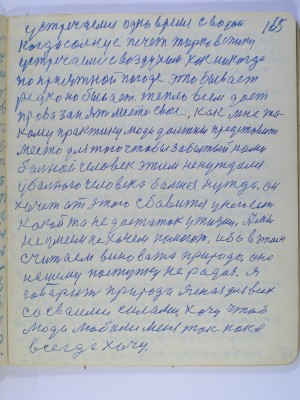 185
устречаемидно время сводой
когда солнце печет жарко в спину
устречаемся воздухом как некогда
по приятной погоде это бывает
редко но бывает. тепло всем дает
права занять место свое, как мне та-
кому практику люди должны предоставить
место для того чтобы забытый нами
больной человек этим не нуждался
у больного человека больше нужда, он
хочет от этого избавится у него есть
какой то недостаток у жизни, а мы
не умеем не хочем помочь, ибо в этом
считаем виновата природа, она
нашему поступку не рада. я
говорит природа я на для всех
со своими силами, хочу чтоб
люди любили меня так как
всегда хочу.